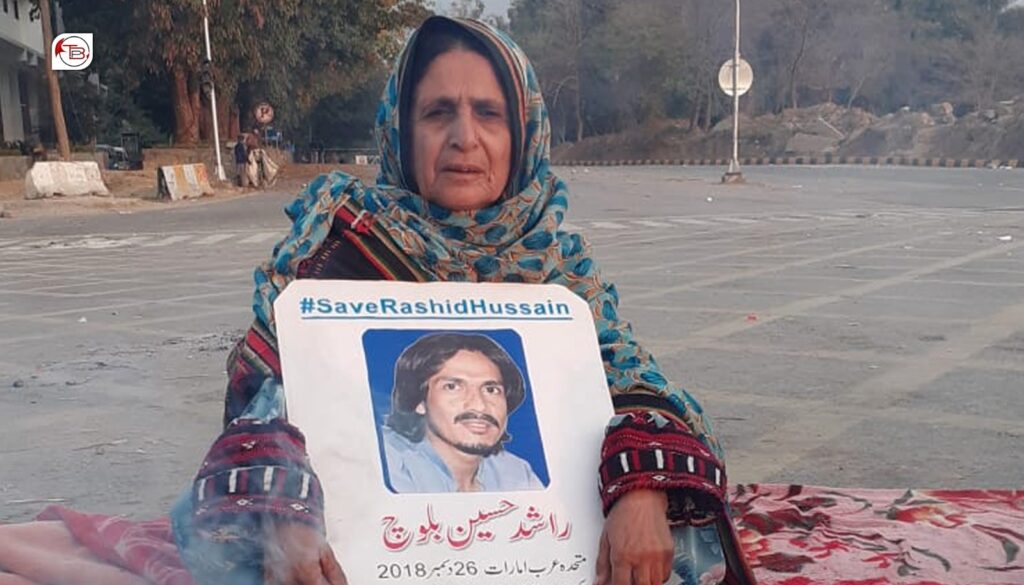 TBP
#SaveRashidHussain
راشد حسین بلوچ
متحدہ عرب امارات 26 دسمبر 2018